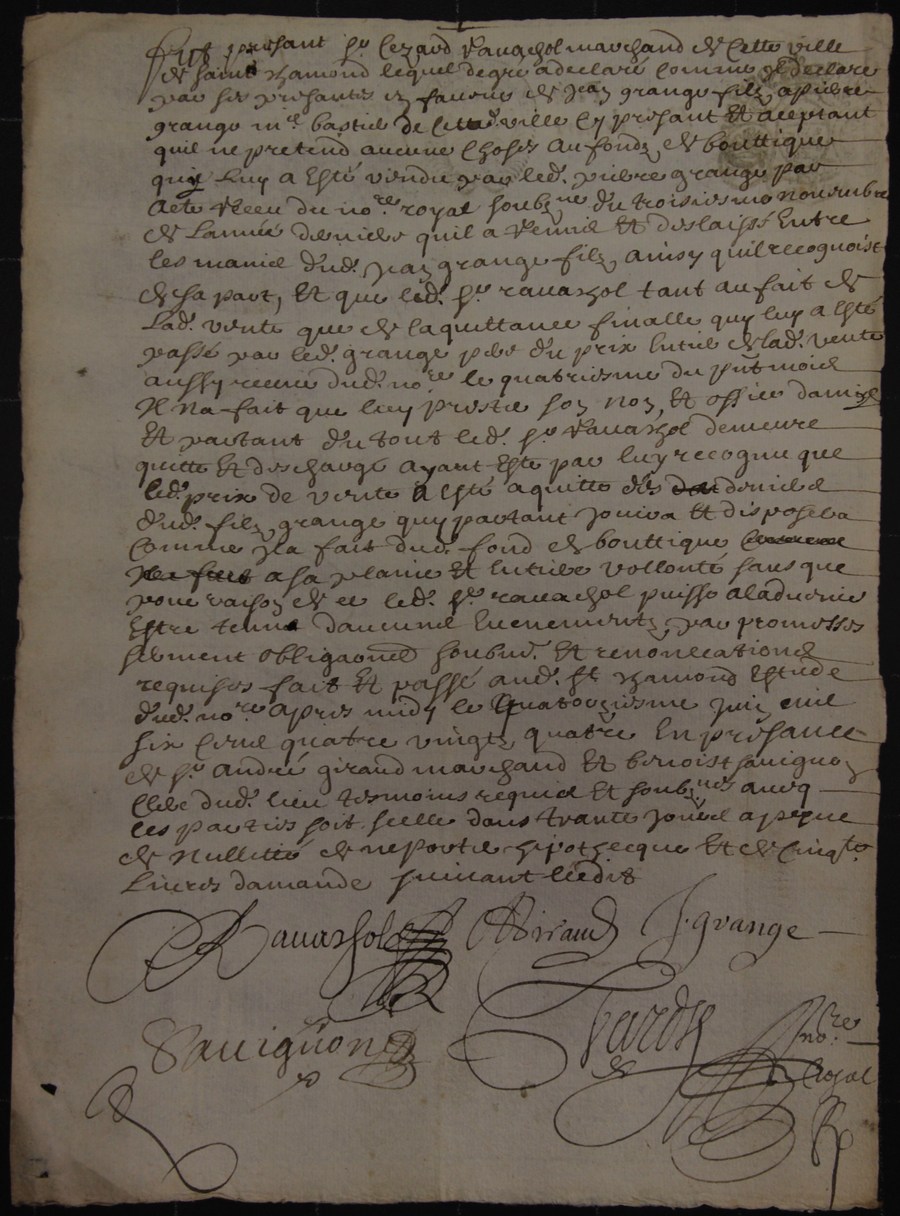 Fut presant sr Cezard Ravachol marchand de Cette ville
de saint chamond lequel de gre a declaré comme Il declare
par ses presantes en faveur de Jean grange filz a pierre
grange me bastier de Cette ville Cy presant Et aceptant
quil ne pretend aucune Choses au fondz de bouttique
quy Luy a Esté vendu par led. pierre grange par
acte Receu du no.re royal soubz.né du troisiesme novembre
de Lannée derniere quil a Remis Et deslaissé Entre
les mains dud. Jean grange filz, ainsy quil recognoist
de sa part, Et que led. sr ravachol tant au fait de
Lad. vente que de la quittance finalle quy luy a Esté
passé par led. grange pere du prix Entier de lad. vente
aussy receue dud. no.re le quatriesme du pñt mois
Il na fait que luy prester son nom, Et office damis
Et partant du tout led. sr Ravachol demeure
quitte Et descharge ayant Esté par luy recognu que
led. prix de vente a Esté aquitté des deniers
dud. filz grange quy partant Jouira Et disposera
Comme Il a fait dud. fond de bouttique
a sa plaine Et Entiere vollonté sans que
pour raison de ce led. sr ravachol puisse a ladvenir
Estre tenu daucuns Evenementz, par promesses
serment obligaons soubm. Et renonciations
requises fait Et passé aud. St chamond Estude
dud. no.re apres midy le quatorziesme Juin mil
six Cens quatre vingtz quatre En presance
de sr André giraud marchand Et benoist savignon
Clerc dud. lieu tesmoins requis Et soubz.nés avec
les parties soit scellé dans trante Jours a peyne
de Nullitté de ne porter hipothecque Et de Cinq.te
Livres damande suivant lédit
Ravachol Giraud J. grange
Savignon Tardy no.re
royal